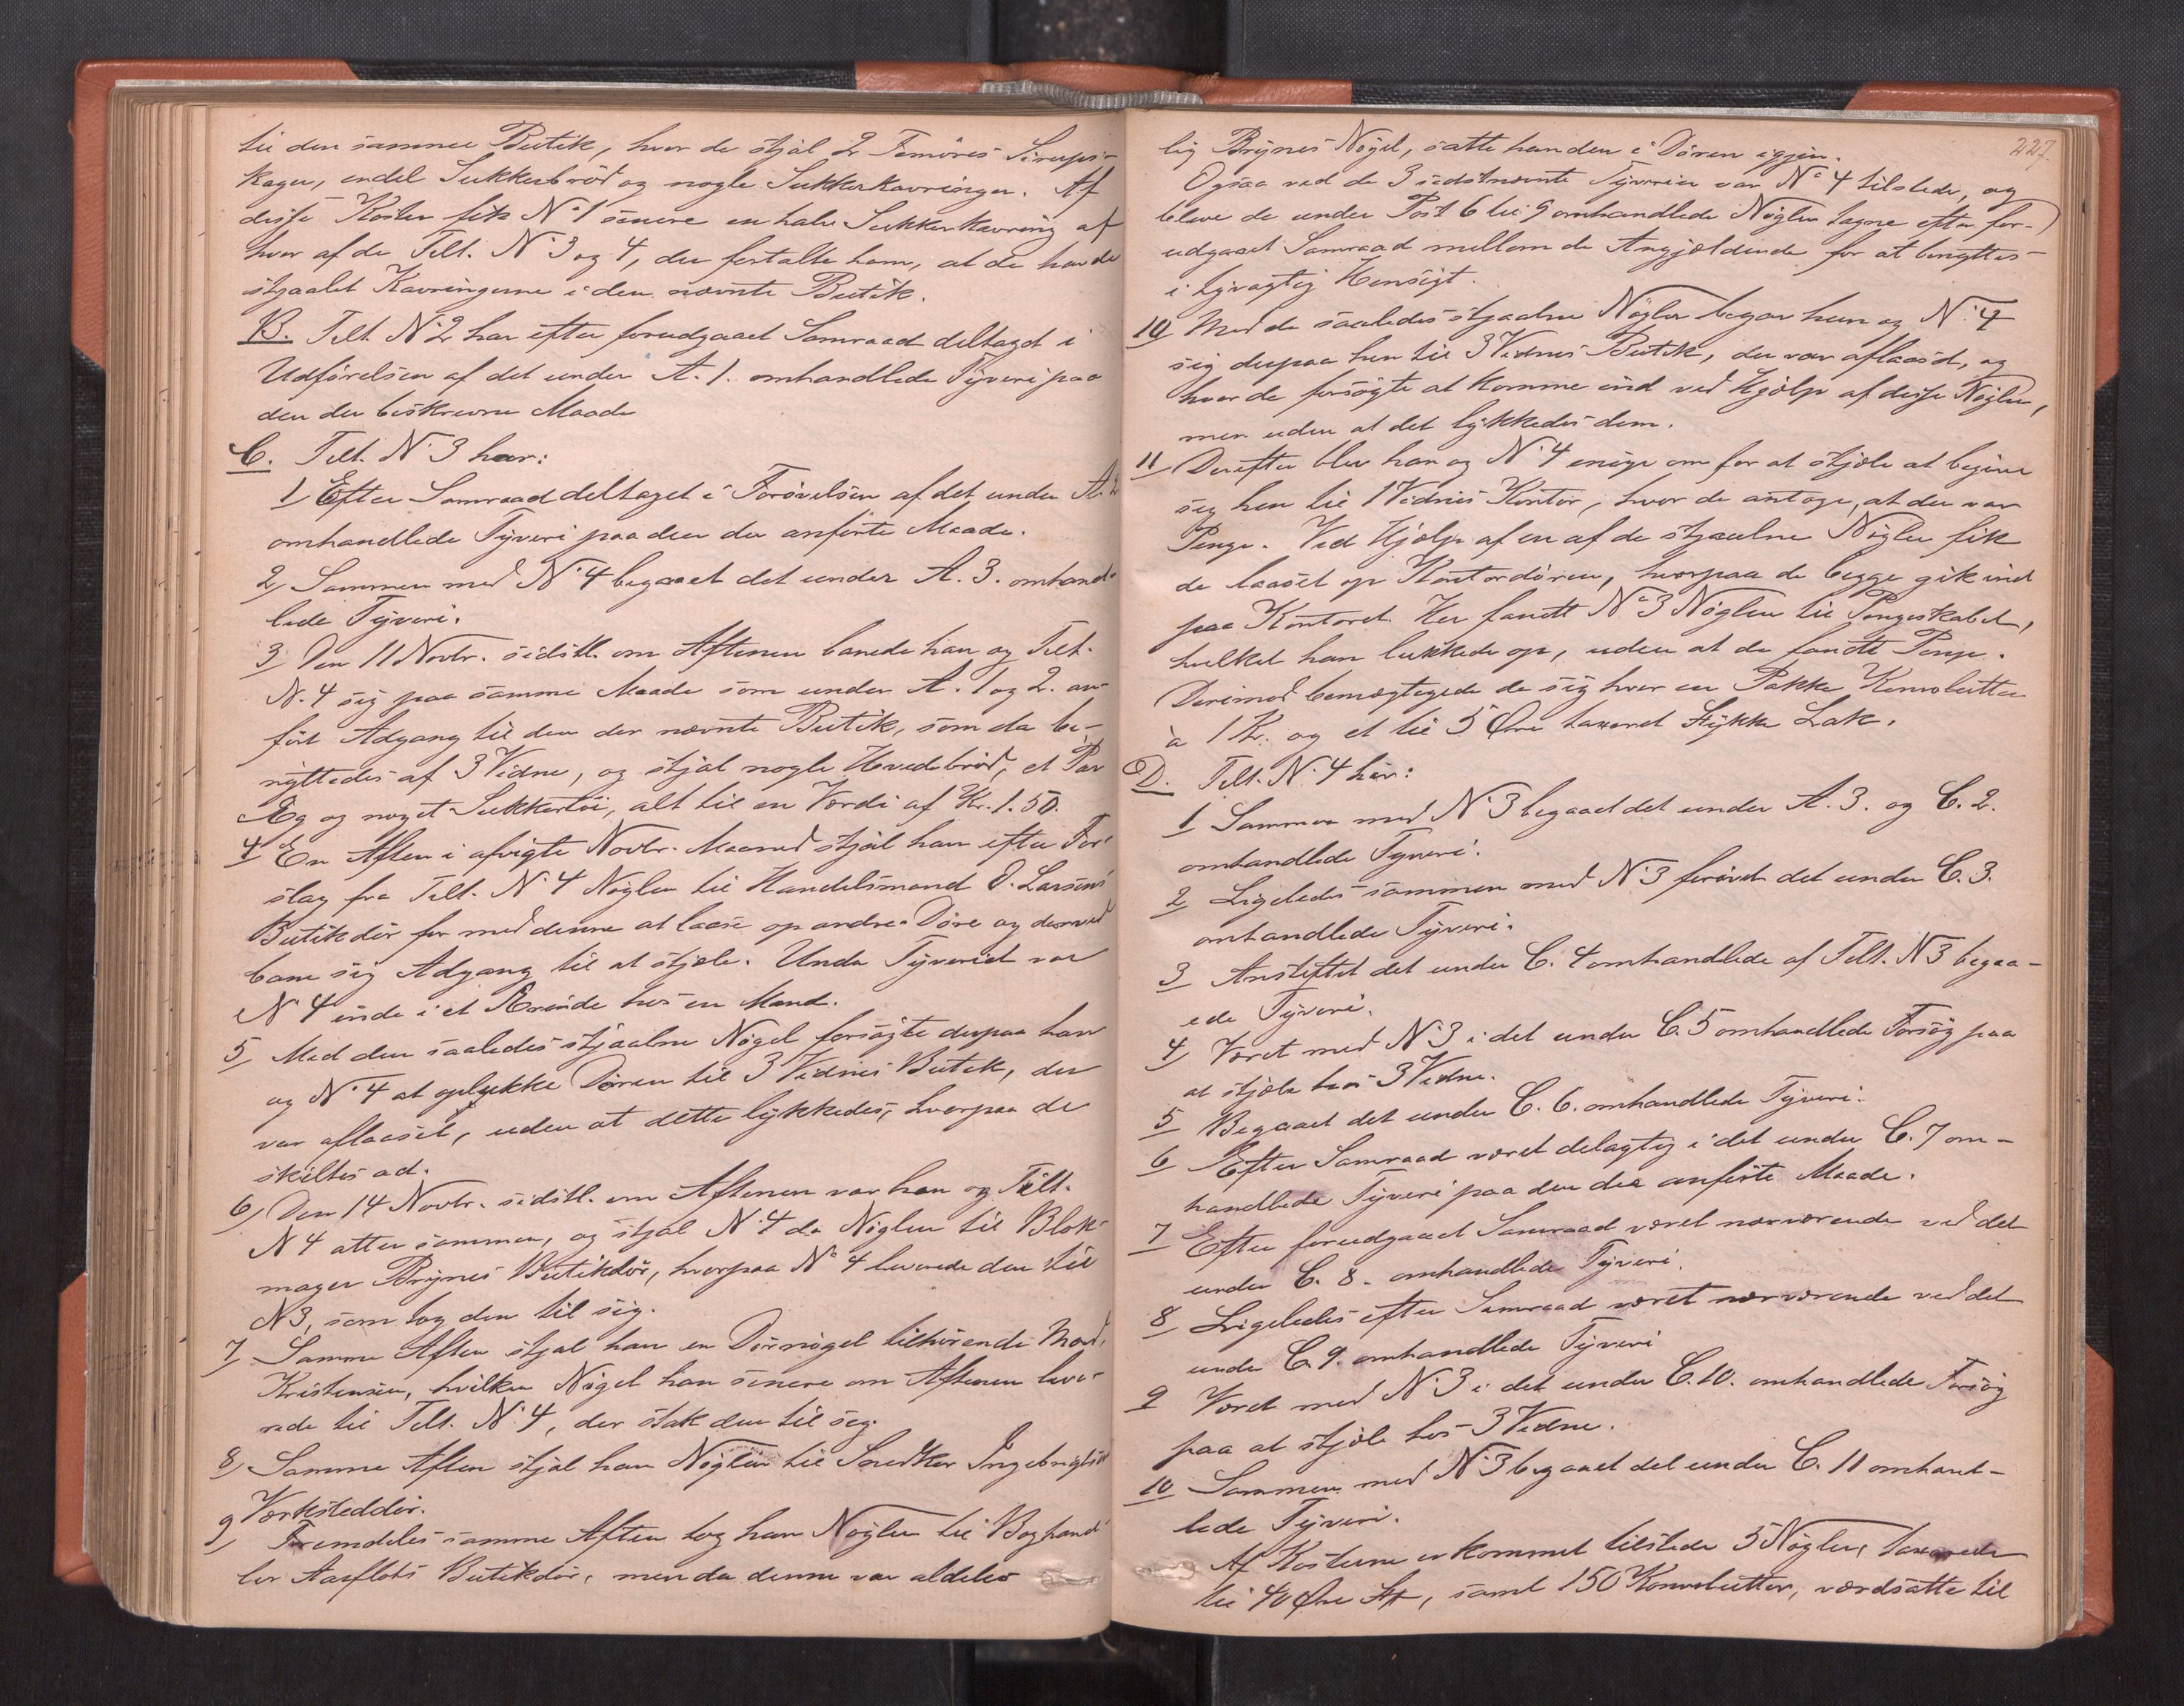 til den samme Butik, hvor de stjal 2 Femøres Sirups-
kager, endel Sukkerbrød og nogle Sukkerkavringer. Af
disse Koster fik N° 1 senere en halv Sukkerkavring af
hver af de Tilt. N° 3 og 4, der fortalte ham, at de havde
stjaalet Kavringerne i den nævnte Butik.
B. Tilt. N° 2 har efter forudgaaet Samraad deltaget i
Udførelsen af det under A. 1. omhandlede Tyveri paa
den der beskrevne Maade
C. Tilt. N° 3 har:
1) Efter Samraad deltaget i Forøvelsen af det under A. 2
omhandlede Tyveri paa den der anførte Maade.
2) Sammen med N° 4 begaaet det under A. 3. omhand-
lede Tyveri.
3) Den 11 Novbr. sidstl. om Aftenen banede han og Tilt.
N. 4 sig paa samme Maade som under A. 1 og 2. an-
ført Adgang til den der nævnte Butik, som da be-
nyttedes af 3 Vidne, og stjal nogle Hvedebrød, et Par
Æg og noget Sukkertøi, alt til en Værdi af Kr. 1.50.
4) En Aften i afvigte Novbr. Maaned stjal han efter For-
slag fra Tilt. N° 4 Nøglen til Handelsmand O. Larsens
Butikdør for med denne at laase op andre Døre og derved
bane sig Adgang til at stjæle. Under Tyveriet var
N° 4 inde i et Ærinde hos en Mand.
5) Med den saaledes stjaalne Nøgel forsøgte derpaa han
og N° 4 at oplukke Døren til 3 Vidnes Butik, der
var aflaaset, uden at dette lykkedes, hvorpaa de
skiltes ad.
6) Den 14 Novbr. sidstl. om Aftenen var han og Tilt.
N 4 atter sammen, og stjal N° 4 da Nøglen til Blok-
mager Brynes Butikdør, hvorpaa N° 4 leverede den til
N 3, som tog den til sig.
7) Samme Aften stjal han en Dørnøgel tilhørende Mad.
Kristensen, hvilken Nøgel han senere om Aftenen leve-
rede til Tilt. N° 4, der stak den til sig.
8) Samme Aften stjal han Nøglen til Snedker Ingebrigtsens
Værksteddør.
9) Fremdeles samme Aften tog han Nøglen til Boghand-
ler Aarflots Butikdør, men da denne var aldeles
227.
lig Brynes Nøgel, satte han den i Døren igjen.
Ogsaa ved de 3 sidstnævnte Tyverier var N° 4 tilstede, og
bleve de under Post 6 til 9 omhandlede Nøgler tagne efter for-
udgaaet Samraad mellem de Angjældende for at benyttes
i tyvagtig Hensigt.
10 Med de saaledes stjaalne Nøgler begav han og N° 4
sig derpaa hen til 3 Vidnes Butik, der var aflaast, og
hvor de forsøgte at komme ind ved Hjælp af disse Nøgler,
men uden at det lykkedes dem.
11 Derefter blev han og N° 4 enige om for at stjæle at begive
sig hen til 1 Vidnes Kontor, hvor de antoge, at der var
Penge. Ved Hjælp af en af de stjaalne Nøgler fik
de laaset op Kontordøren, hvorpaa de begge gik ind
paa Kontoret. Her fandt N° 3 Nøglen til Pengeskabet,
hvilket han lukkede op, uden at de fandt Penge.
Derimod bemægtigede de sig hver en Pakke Konvolutter
à 1 Kr. og et til 5 Øre taxeret Stykke Lak.
D. Tilt. N° 4 har:
1 Sammen med N° 3 begaaet det under A. 3. og C. 2.
omhandlede Tyveri.
2 Ligeledes sammen med N° 3 forøvet det under C. 3.
omhandlede Tyveri.
3 Anstiftet det under C. 4 omhandlede af Tilt. N 3 begaa-
ede Tyveri.
4) Været med N° 3 i det under C. 5 omhandlede Forsøg paa
at stjæle hos 3 Vidne.
5 Begaaet det under C. 6. omhandlede Tyveri.
6 Efter Samraad været delagtig i det under C. 7 om-
handlede Tyveri paa den der anførte Maade.
7 Efter forudgaaet Samraad været nærværende ved det
under C. 8. omhandlede Tyveri.
8 Ligeledes efter Samraad været nærværende ved det
under C. 9. omhandlede Tyveri
9 Været med N° 3 i det under C. 10. omhandlede Forsøg
paa at stjæle hos 3 Vidne.
10 Sammen med N° 3 begaaet det under C. 11 omhand-
lede Tyveri.
Af Kosterne er kommet tilstede 5 Nøgler, taxerede
til 40 Øre St, samt 150 Konvolutter, værdsatte til